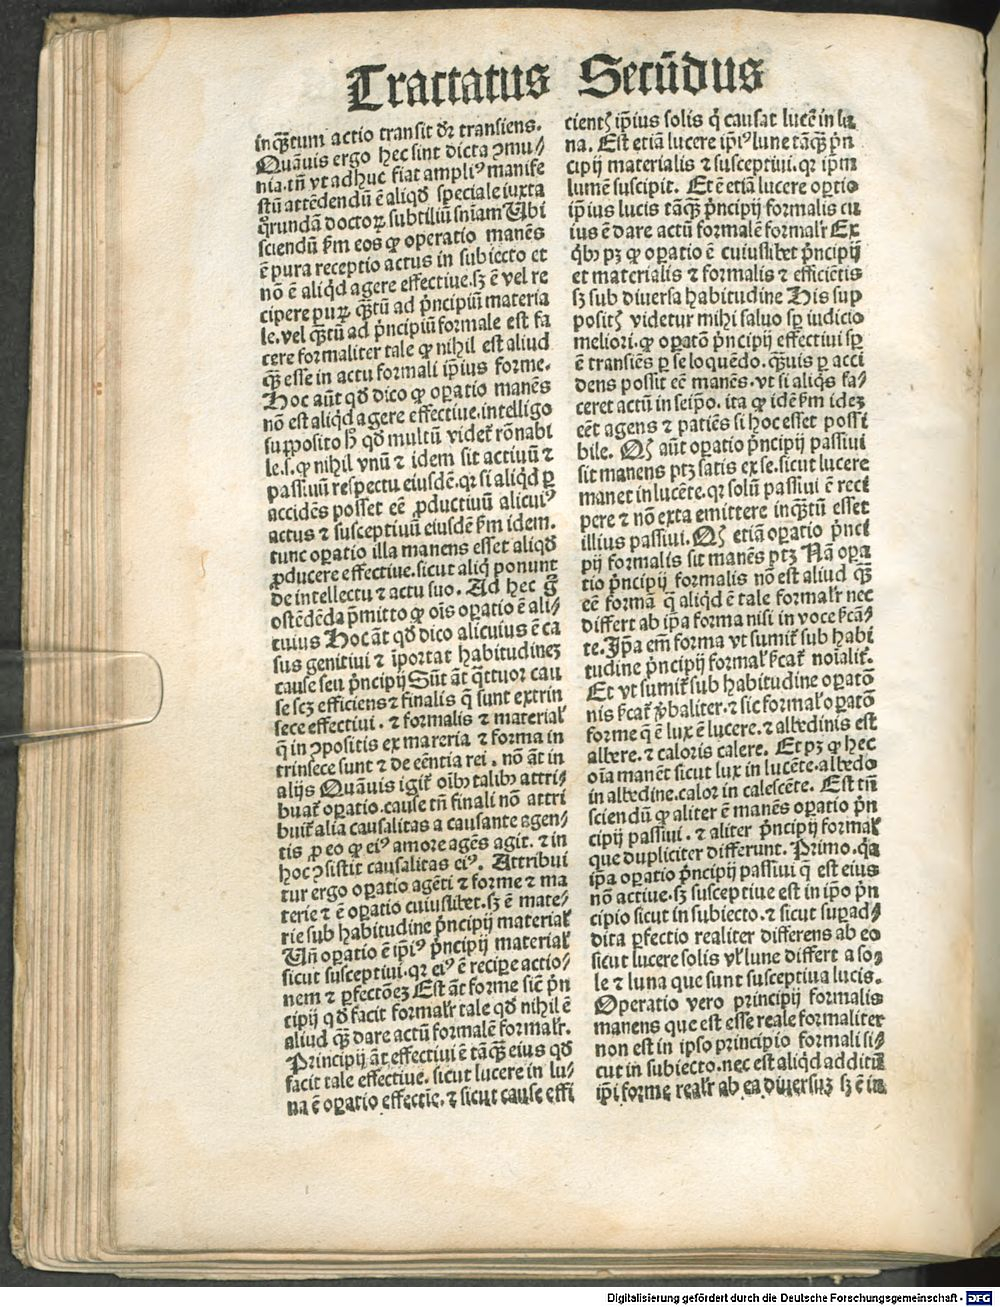 Tractatus Secūdus
inq̄ꝫtum actio transit dr̄ transiens.
Quāuis ergo hec sint dicta ꝯmu⸗
nia.tn̄ vt adhuc fiat ampliꝰ manife
stū attēdendū ē aliqd̄ speciale iuxta
qͦrundā doctoꝝ subtiliū sn̄iam Ubi
sciendū ẜm eos ꝙ operatio manēs
ē pura receptio actus in subiecto et
nō ē aliqͥd agere effectiue.sꝫ ē vel re
cipere puꝝ q̄ꝫtū ad pͥncipiū materia
le.vel q̄ꝫtū ad pͥncipiū formale est fa
cere formaliter tale ꝙ nihil est aliud
q̄ꝫ esse in actu formali ip̄ius forme.
Hoc aūt qd̄ dico ꝙ oꝑatio manēs
nō est aliqͥd agere effectiue.intelligo
supposito h̄ qd̄ multū videt᷑ rōnabi
le.s.ꝙ nihil vnū ⁊ idem sit actiuū ⁊
passiuū respectu eiusdē.qꝛ si aliqͥd ꝑ
accidēs posset eē ꝓductiuū alicuiꝰ
actus ⁊ susceptiuū eiusdē ẜm idem.
tunc oꝑatio illa manens esset aliqd̄
ꝓducere effectiue.sicut aliqͥ ponunt
de intellectu ⁊ actu suo. Ad hec g̊
ostēdēda p̄mitto ꝙ oīs oꝑatio ē ali⸗
cuius Hoc āt qd̄ dico alicuius ē ca
sus genitiui ⁊ īportat habitudineꝫ
cause seu pͥncipij Sūt āt q̄ttuor cau
se scꝫ efficiens ⁊ finalis q̄ sunt extrin
sece effectiui. ⁊ formalis ⁊ material᷑
q̄ in ꝯpositis ex mareria ⁊ forma in
trinsece sunt ⁊ de eēntia rei. nō āt in
alijs Quāuis igit᷑ oībꝫ talibꝫ attri⸗
buat᷑ oꝑatio.cause tn̄ finali nō attri
buit᷑ alia causalitas a causante agen⸗
tis ꝓ eo ꝙ eiꝰ amore agēs agit. ⁊ in
hoc ꝯsistit causalitas eiꝰ. Attribui
tur ergo oꝑatio agēti ⁊ forme ⁊ ma
terie ⁊ ē oꝑatio cuiuslibet.sꝫ ē mate⸗
rie sub habitudine pͥncipij material᷑
Un̄ oꝑatio ē ip̄iꝰ pͥncipij material᷑
sicut susceptiui.qꝛ eiꝰ ē recipe actio⸗
nem ⁊ ꝑfectōeꝫ Est āt forme sic̄ pͥn
cipij qd̄ facit formal᷑r tale qd̄ nihil ē
aliud q̄ꝫ dare actū formalē formal᷑r.
Principij āt effectiui ē tāq̄ꝫ eius qd̄
facit tale effectiue. sicut lucere in lu⸗
na ē oꝑatio effectiē.⁊ sicut cause effi
cientꝭ ip̄ius solis q̄ causat lucē in lu
na. Est etiā lucere ip̄iꝰ lune tāq̄ꝫ pͥn
cipij materialis ⁊ susceptiui.qꝛ ip̄m
lumē suscipit. Et ē etiā lucere oꝑtio
ip̄ius lucis tāq̄ꝫ pͥncipij formalis cu
ius ē dare actū formalē formal᷑r Ex
qͥbꝫ pꝫ ꝙ oꝑatio ē cuiuslibet pͥncipij
et materialis ⁊ formalis ⁊ efficiētis
sꝫ sub diuersa habitudine His sup
positꝭ videtur mihi saluo sꝑ iudicio
meliori.ꝙ oꝑatō pͥncipij effectiui sꝑ
ē transiēs ꝑ se loquēdo.q̄ꝫuis ꝑ acci
dens possit eē manēs.vt si aliqͥs fa⸗
ceret actū in seip̄o. ita ꝙ idē ẜm ideꝫ
eēt agens ⁊ patiēs si hoc esset possi
bile. Qꝭ aūt oꝑatio pͥncipij passiui
sit manens ptꝫ satis ex se.sicut lucere
manet in lucēte.qꝛ solū passiui ē reci
pere ⁊ nō extra emittere inq̄ꝫtū esset
illius passiui. Qꝭ etiā oꝑatio pͥnci
pij formalis sit manēs ptꝫ Nā oꝑa
tio pͥncipij formalis nō est aliud q̄ꝫ
eē formā q̄ aliqͥd ē tale formal᷑r nec
differt ab ip̄a forma nisi in voce ẜcā⸗
te.Ip̄a em̄ forma vt sumit᷑ sub habi
tudine pͥncipij formal᷑ ẜcat᷑ noīalit᷑.
Et vt sumit᷑ sub habitudine oꝑatō
nis ẜcat᷑ v̄baliter.⁊ sic formal᷑ oꝑatō
forme q̄ ē lux ē lucere.⁊ albedinis est
albere.⁊ caloris calere. Et pꝫ ꝙ hec
oīa manēt sicut lux in lucēte.albedo
in albedine.calor in calescēte. Est tn̄
sciendū ꝙ aliter ē manēs oꝑatio pͥn
cipij passiui . ⁊ aliter pͥncipij formal᷑
que dupliciter differunt. Primo.qͥa
ip̄a oꝑatio pͥncipij passiui q̄ est eius
nō actiue.sꝫ susceptiue est in ip̄o pͥn
cipio sicut in subiecto.⁊ sicut suꝑad⸗
dita ꝑfectio realiter differens ab eo
sicut lucere solis vl᷑ lune differt a so⸗
le ⁊ luna que sunt susceptiua lucis.
Operatio vero principij formalis
manens que est esse reale formaliter
non est in ipso principio formali si⸗
cut in subiecto.nec est aliqͥd additū
ip̄i forme real᷑r ab ea diuersuꝫ sꝫ ē in
Digitalisierung gefördert durch die Deutsche Forschungsgemeinschaft - DFG